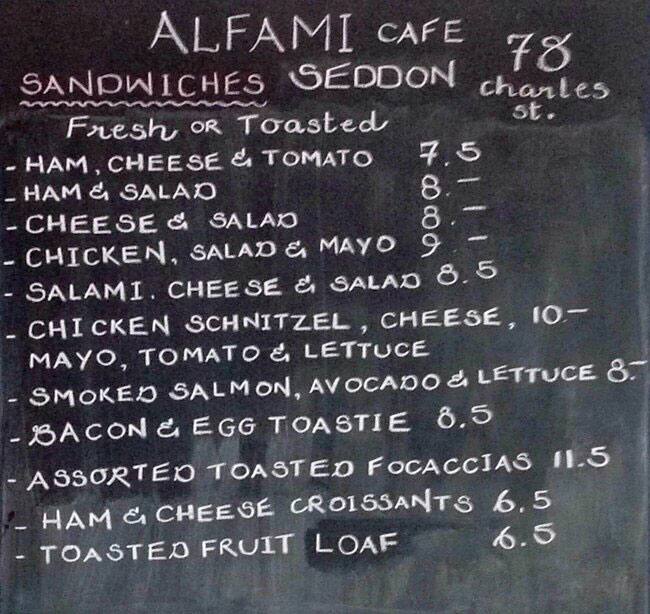 ALFAMI CAFE
SANDWICHES SEDDON 78 charles st.
Fresh OR Toasted
- HAM, CHEESE & TOMATO 7.5
- HAM & SALAD 8.-
- CHEESE & SALAD 8.-
- CHICKEN, SALAD & MAYO 9.-
- SALAMI. CHEESE & SALAD 8.5
- CHICKEN SCHNITZEL, CHEESE, 10-
MAYO, TOMATO & LETTUCE
- SMOKED SALMON, AVOCADO & LETTUCE 8.-
- BACON & EGG TOASTIE 8.5
- ASSORTED TOASTED FOCACCIAS 11.5
- HAM & CHEESE CROISSANTS 6.5
- TOASTED FRUIT LOAF 6.5